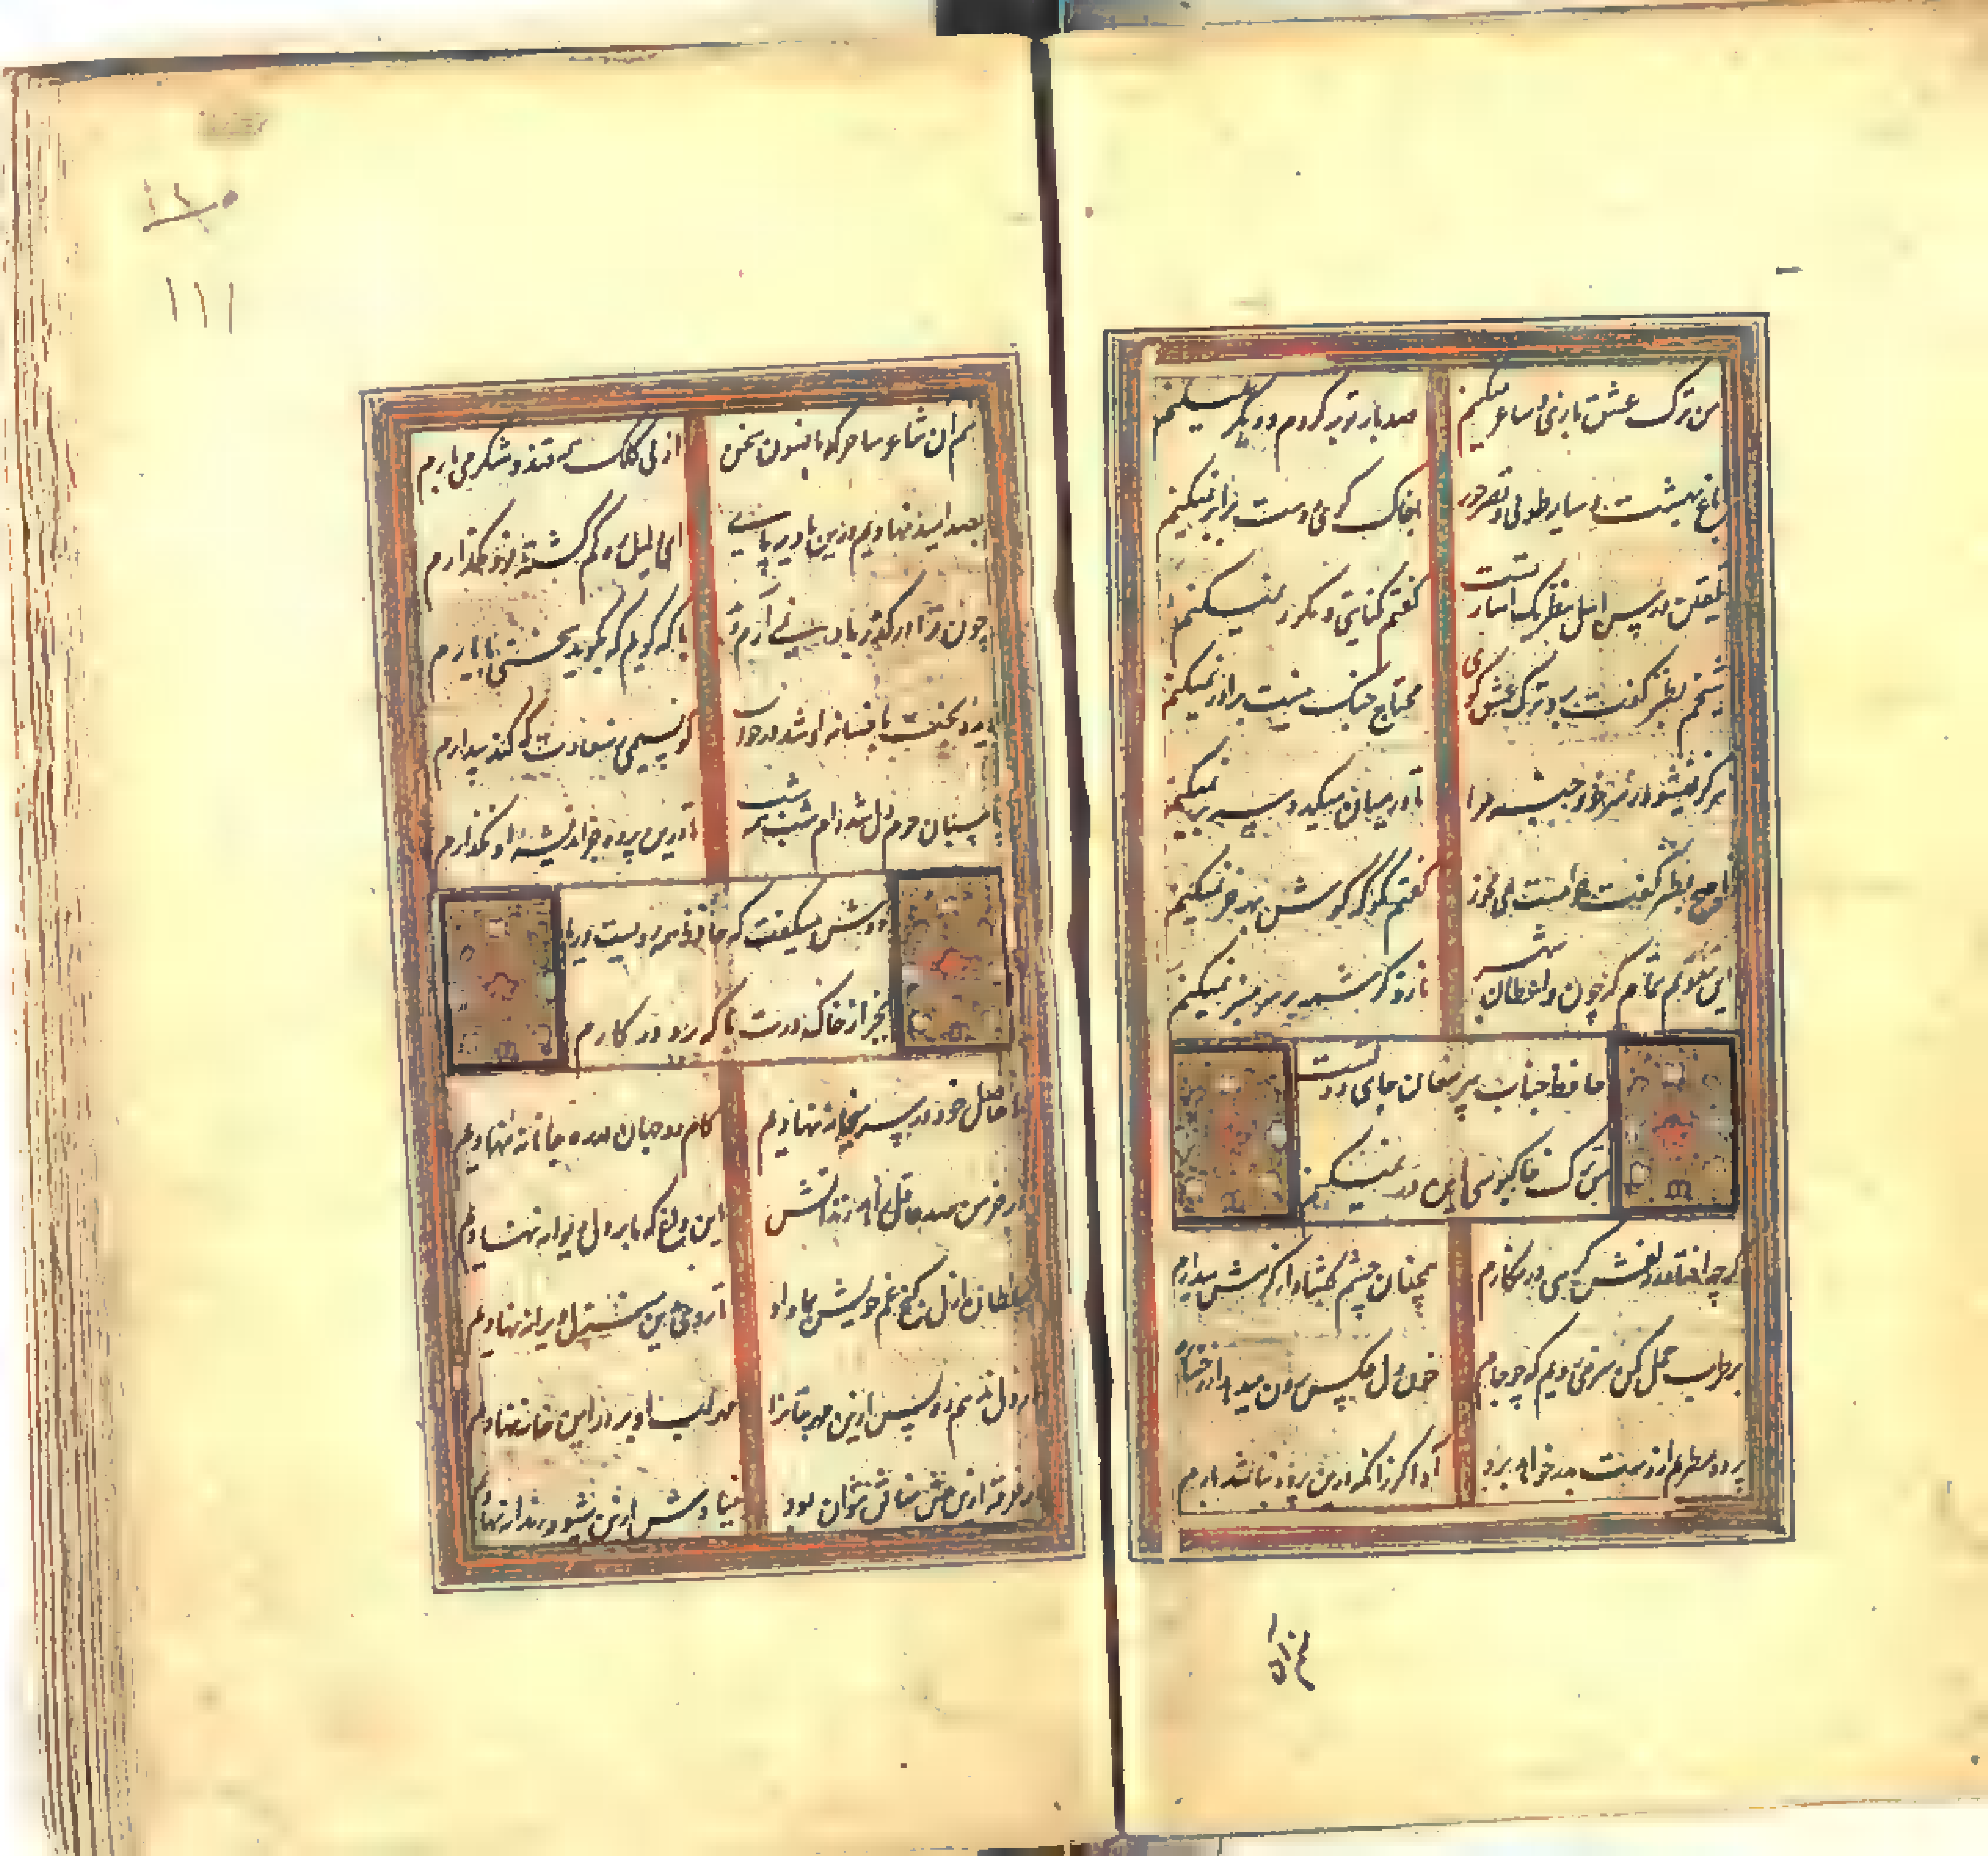 من ترک عشق بازی و ساغر نمیکنم
صد بار توبه کردم و دیگر نمیکنم
باغ بهشت و سایه طوبی و قصر حور
با خاک کوی دوست برابر نمیکنم
تلقین درس اهل نظر یک اشارتست
گفتم کنایتی و مکرر نمیکنم
شیخم بطنز گفت برو ترک عشق کن
محتاج جنگ نیست برادر نمیکنم
هرگز نمیشود ز سر خود خبر مرا
تا در میان میکده سر بر نمیکنم
ناصح بطنز گفت حرامست می مخور
گفتم بگو که گوش بهر خر نمیکنم
این تقویم تمام که چون واعظان شهر
ناز و کرشمه بر سر منبر نمیکنم
حافظ جناب پیر مغان جای دولتست
من ترک خاکبوسی این در نمیکنم
گرچه افتاد ز زلفش گرهی در کارم
همچنان چشم گشاد از کرمش میدارم
بطرب حمل مکن سرخی رویم که چو جام
خون دل عکس برون میدهد از رخسارم
پرده مطربم از دست بدر خواهد برد
آه اگر زانکه درین پرده نباشد بارم
منم آن شاعر ساحر که بافسون سخن
از نی کلک همه قند و شکر می بارم
بصد امید نهادیم درین بادیه پای
ای دلیل ره گم گشته فرو مگذارم
چون ترا در گذر باد نمی یارم دید
با که گویم که بگوید سخنی با یارم
دیده بخت بافسانه او شد در خواب
کو نسیمی ز سعادت که کند بیدارم
پاسبان حرم دل شده ام شب همه شب
تا درین پرده جز اندیشه او نگذارم
دوش میگفت که حافظ همه رویست و ریا
بجز از خاک درت با که بود در کارم
ما حاصل خود در سر میخانه نهادیم
کام دو جهان در ره جانانه نهادیم
در خرمن صد عاقل زاهد زند آتش
این داغ که ما بر دل دیوانه نهادیم
سلطان ازل گنج غم خویش بما داد
تا روی درین منزل ویرانه نهادیم
در دل ندهم ره پس ازین مهر بتان را
مهر لب او بر در این خانه نهادیم
در خرقه ازین بیش منافق نتوان بود
بنیادش ازین شیوه رندانه نهادیم
۱۱۱